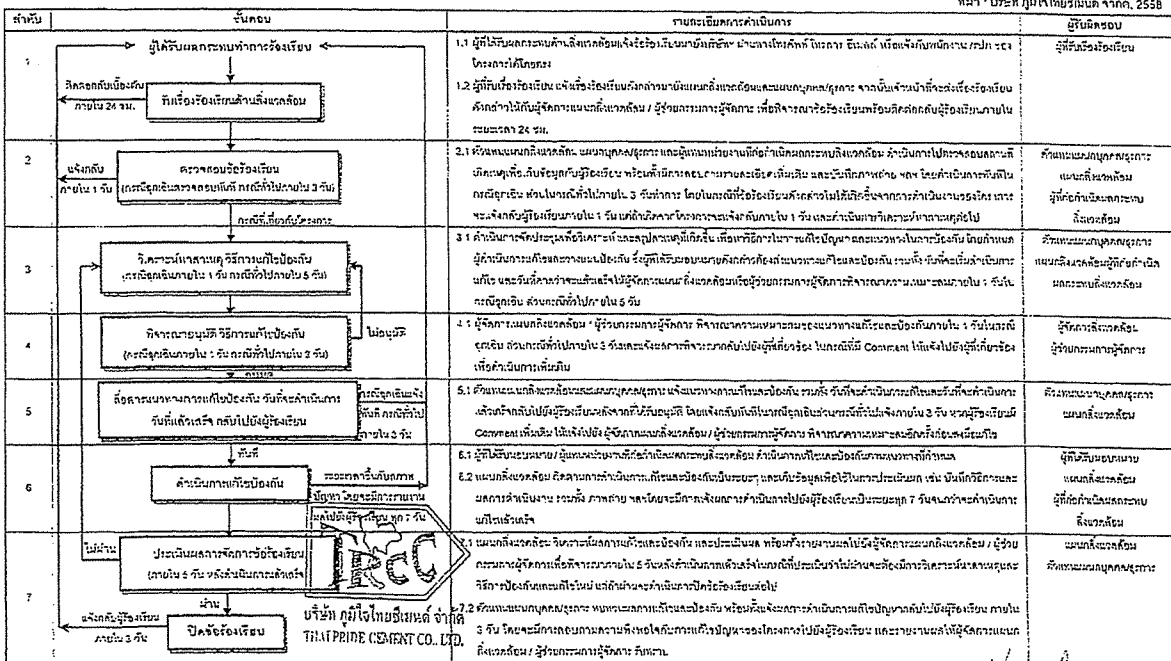 ที่มา : บริษัท ภูมิใจไทยซีเมนต์ จำกัด, 2558
ลำดับ
ขั้นตอน
รายละเอียดการดำเนินการ
ผู้รับผิดชอบ
1
ผู้ได้รับผลกระทบทำการร้องเรียน
ติดต่อกลับเบื้องต้น
ภายใน 24 ชม.
รับเรื่องร้องเรียนด้านสิ่งแวดล้อม
1.1 ผู้ที่ได้รับผลกระทบด้านสิ่งแวดล้อมแจ้งข้อร้องเรียนมายังบริษัทฯ ผ่านทางโทรศัพท์ โทรสาร อีเมลล์ หรือแจ้งกับพนักงาน /รปภ ของ
โครงการได้โดยตรง
1.2 ผู้ที่รับเรื่องร้องเรียน แจ้งเรื่องร้องเรียนดังกล่าวมายังแผนกสิ่งแวดล้อมและแผนกบุคคล/ธุรการ จากนั้นเจ้าหน้าที่จะส่งเรื่องร้องเรียน
ดังกล่าวให้กับผู้จัดการแผนกสิ่งแวดล้อม / ผู้ช่วยกรรมการผู้จัดการ เพื่อพิจารณาข้อร้องเรียนพร้อมติดต่อกลับผู้ร้องเรียนภายใน
ระยะเวลา 24 ชม.
ผู้ที่รับเรื่องร้องเรียน
2
แจ้งกลับ
ภายใน 1 วัน
ตรวจสอบข้อร้องเรียน
(กรณีฉุกเฉินตรวจสอบทันที กรณีทั่วไปภายใน 3 วัน)
กรณีที่เกี่ยวกับโครงการ
2.1 ตัวแทนแผนกสิ่งแวดล้อม แผนกบุคคล/ธุรการ และผู้แทนหน่วยงานที่ก่อกำเนิดผลกระทบสิ่งแวดล้อม ดำเนินการไปตรวจสอบสถานที่
เกิดเหตุเพื่อเก็บข้อมูลกับผู้ร้องเรียน พร้อมทั้งมีการสอบถามรายละเอียดเพิ่มเติม และบันทึกภาพถ่าย ฯลฯ โดยดำเนินการทันทีใน
กรณีฉุกเฉิน ส่วนในกรณีทั่วไปภายใน 3 วันทำการ โดยในกรณีที่ข้อร้องเรียนดังกล่าวไม่ได้เกิดขึ้นจากการดำเนินงานของโครงการ
จะแจ้งกลับผู้ร้องเรียนภายใน 1 วัน แต่ถ้าเกิดจากโครงการจะแจ้งกลับภายใน 1 วัน และดำเนินการวิเคราะห์หาสาเหตุต่อไป
ตัวแทนแผนกบุคคล/ธุรการ
แผนกสิ่งแวดล้อม
ผู้ที่ก่อกำเนิดผลกระทบ
สิ่งแวดล้อม
3
วิเคราะห์หาสาเหตุ วิธีการแก้ไขป้องกัน
(กรณีฉุกเฉินภายใน 1 วัน กรณีทั่วไปภายใน 5 วัน)
3.1 ดำเนินการจัดประชุมเพื่อวิเคราะห์ และสรุปสาเหตุที่เกิดขึ้น เพื่อหาวิธีการในการแก้ไขปัญหา และแนวทางในการป้องกัน โดยกำหนด
ผู้ดำเนินการแก้ไขและวางแผนป้องกัน ซึ่งผู้ที่ได้รับมอบหมายดังกล่าวต้องส่งแนวทางแก้ไขและป้องกัน รวมทั้ง วันที่จะเริ่มดำเนินการ
แก้ไข และวันที่คาดว่าจะแล้วเสร็จให้ผู้จัดการแผนกสิ่งแวดล้อมหรือผู้ช่วยกรรมการผู้จัดการพิจารณาความเหมาะสมภายใน 1 วันใน
กรณีฉุกเฉิน ส่วนกรณีทั่วไปภายใน 5 วัน
ตัวแทนแผนกบุคคล/ธุรการ
แผนกสิ่งแวดล้อมผู้ที่ก่อกำเนิด
ผลกระทบสิ่งแวดล้อม
4
พิจารณาอนุมัติ วิธีการแก้ไขป้องกัน
(กรณีฉุกเฉินภายใน 1 วัน กรณีทั่วไปภายใน 3 วัน)
ไม่อนุมัติ
อนุมัติ
4.1 ผู้จัดการแผนกสิ่งแวดล้อม / ผู้ช่วยกรรมการผู้จัดการ พิจารณาความเหมาะสมของแนวทางแก้ไขและป้องกันภายใน 1 วันในกรณี
ฉุกเฉิน ส่วนกรณีทั่วไปภายใน 3 วันและแจ้งผลการพิจารณากลับไปยังผู้ที่เกี่ยวข้อง ในกรณีที่มี Comment ให้แจ้งไปยังผู้ที่เกี่ยวข้อง
เพื่อดำเนินการเพิ่มเติม
ผู้จัดการสิ่งแวดล้อม
ผู้ช่วยกรรมการผู้จัดการ
5
สื่อสารแนวทางการแก้ไขป้องกัน วันที่จะดำเนินการ
วันที่แล้วเสร็จ กลับไปยังผู้ร้องเรียน
กรณีฉุกเฉินแจ้ง
ทันที กรณีทั่วไป
ภายใน 3 วัน
ทันที
5.1 ตัวแทนแผนกสิ่งแวดล้อมและแผนกบุคคล/ธุรการ แจ้งแนวทางการแก้ไขและป้องกัน รวมทั้ง วันที่จะดำเนินการแก้ไขและวันที่จะดำเนินการ
แล้วเสร็จกลับไปยังผู้ร้องเรียนหลังจากที่ได้รับอนุมัติ โดยแจ้งกลับทันทีในกรณีฉุกเฉินส่วนกรณีทั่วไปแจ้งภายใน 3 วัน หากผู้ร้องเรียนมี
Comment เพิ่มเติม ให้แจ้งไปยัง ผู้จัดการแผนกสิ่งแวดล้อม / ผู้ช่วยกรรมการผู้จัดการ พิจารณาความเหมาะสมอีกครั้งก่อนลงมือแก้ไข
ตัวแทนแผนกบุคคล/ธุรการ
แผนกสิ่งแวดล้อม
6
ดำเนินการแก้ไขป้องกัน
ระยะเวลาขึ้นกับสภาพ
ปัญหา โดยจะมีการรายงาน
ผลไปยังผู้ร้องเรียน ทุก 7 วัน
6.1 ผู้ที่ได้รับมอบหมาย / ผู้แทนหน่วยงานที่ก่อกำเนิดผลกระทบสิ่งแวดล้อม ดำเนินการแก้ไขและป้องกันตามแนวทางที่กำหนด
6.2 แผนกสิ่งแวดล้อม ติดตามการดำเนินการแก้ไขและป้องกันเป็นระยะๆ และเก็บข้อมูลเพื่อใช้ในการประเมินผล เช่น บันทึกวิธีการและ
ผลการดำเนินงาน รวมทั้ง ภาพถ่าย ฯลฯโดยจะมีการแจ้งผลการดำเนินการไปยังผู้ร้องเรียนเป็นระยะทุก 7 วันจนกว่าจะดำเนินการ
แก้ไขแล้วเสร็จ
ผู้ที่ได้รับมอบหมาย
แผนกสิ่งแวดล้อม
ผู้ที่ก่อกำเนิดผลกระทบ
สิ่งแวดล้อม
7
ไม่ผ่าน
ประเมินผลการจัดการข้อร้องเรียน
(ภายใน 5 วัน หลังดำเนินการแล้วเสร็จ)
ผ่าน
แจ้งกลับผู้ร้องเรียน
ภายใน 3 วัน
ปิดข้อร้องเรียน
7.1 แผนกสิ่งแวดล้อม วิเคราะห์ผลการแก้ไขและป้องกัน และประเมินผล พร้อมทั้งรายงานผลไปยังผู้จัดการแผนกสิ่งแวดล้อม / ผู้ช่วย
กรรมการผู้จัดการเพื่อพิจารณาภายใน 5 วันหลังดำเนินการแล้วเสร็จในกรณีที่ประเมินว่าไม่ผ่านจะต้องมีการวิเคราะห์หาสาเหตุและ
วิธีการป้องกันและแก้ไขใหม่ แต่ถ้าผ่านจะดำเนินการปิดข้อร้องเรียนต่อไป
7.2 ตัวแทนแผนกบุคคล/ธุรการ ทบทวนผลการแก้ไขและป้องกัน พร้อมทั้งแจ้งผลการดำเนินการแก้ไขปัญหากลับไปยังผู้ร้องเรียน ภายใน
3 วัน โดยจะมีการสอบถามความพึงพอใจกับการแก้ไขปัญหาของโครงการไปยังผู้ร้องเรียน และรายงานผลให้ผู้จัดการแผนก
สิ่งแวดล้อม / ผู้ช่วยกรรมการผู้จัดการ รับทราบ
แผนกสิ่งแวดล้อม
ตัวแทนแผนกบุคคล/ธุรการ
บริษัท ภูมิใจไทยซีเมนต์ จำกัด
THAI PRIDE CEMENT CO., LTD.